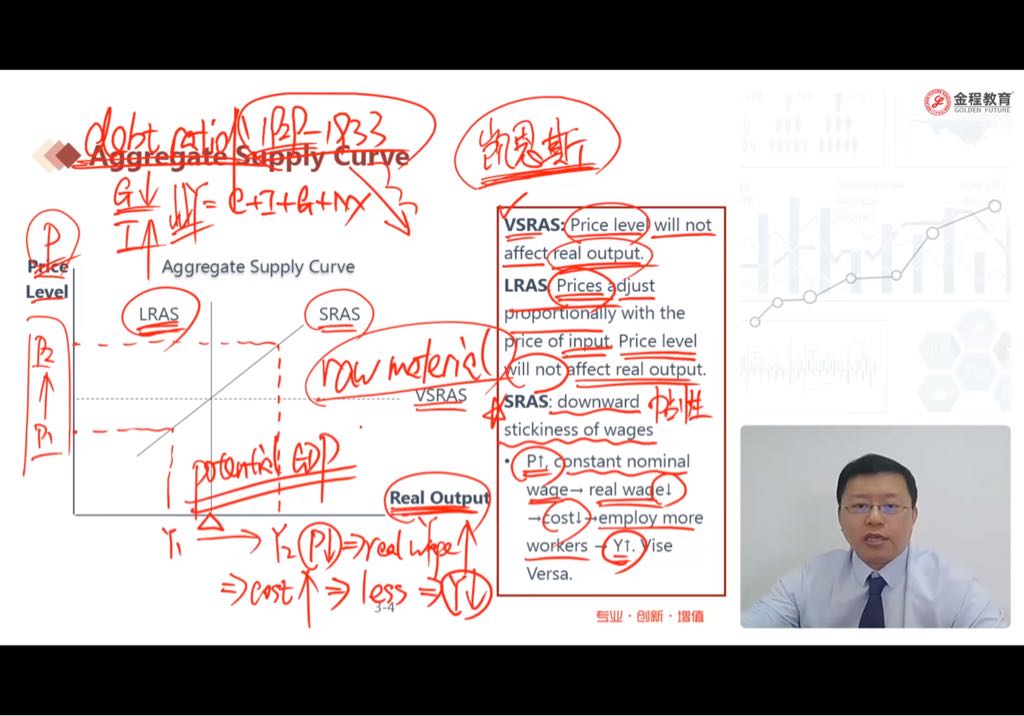 金程教育
GOLDEN FUTURE
debt ratio 1929-1933
凯恩斯
Aggregate Supply Curve
G↓
I↑
Y = C+I+G+NX
P
Price
Level
Aggregate Supply Curve
LRAS
SRAS
VSRAS
P2
P1
raw material
potential GDP
Real Output
Y
Y1 → Y2
P↓ ⇒ real wage↑
⇒ cost↑ ⇒ less ⇒ Y↓
3-4
VSRAS: Price level will not
affect real output.
LRAS: Prices adjust
proportionally with the
price of input. Price level
will not affect real output.
SRAS: downward
stickiness of wages
• P↑, constant nominal
wage→ real wage↓
→cost↓→employ more
workers → Y↑. Vise
Versa.
专业·创新·增值